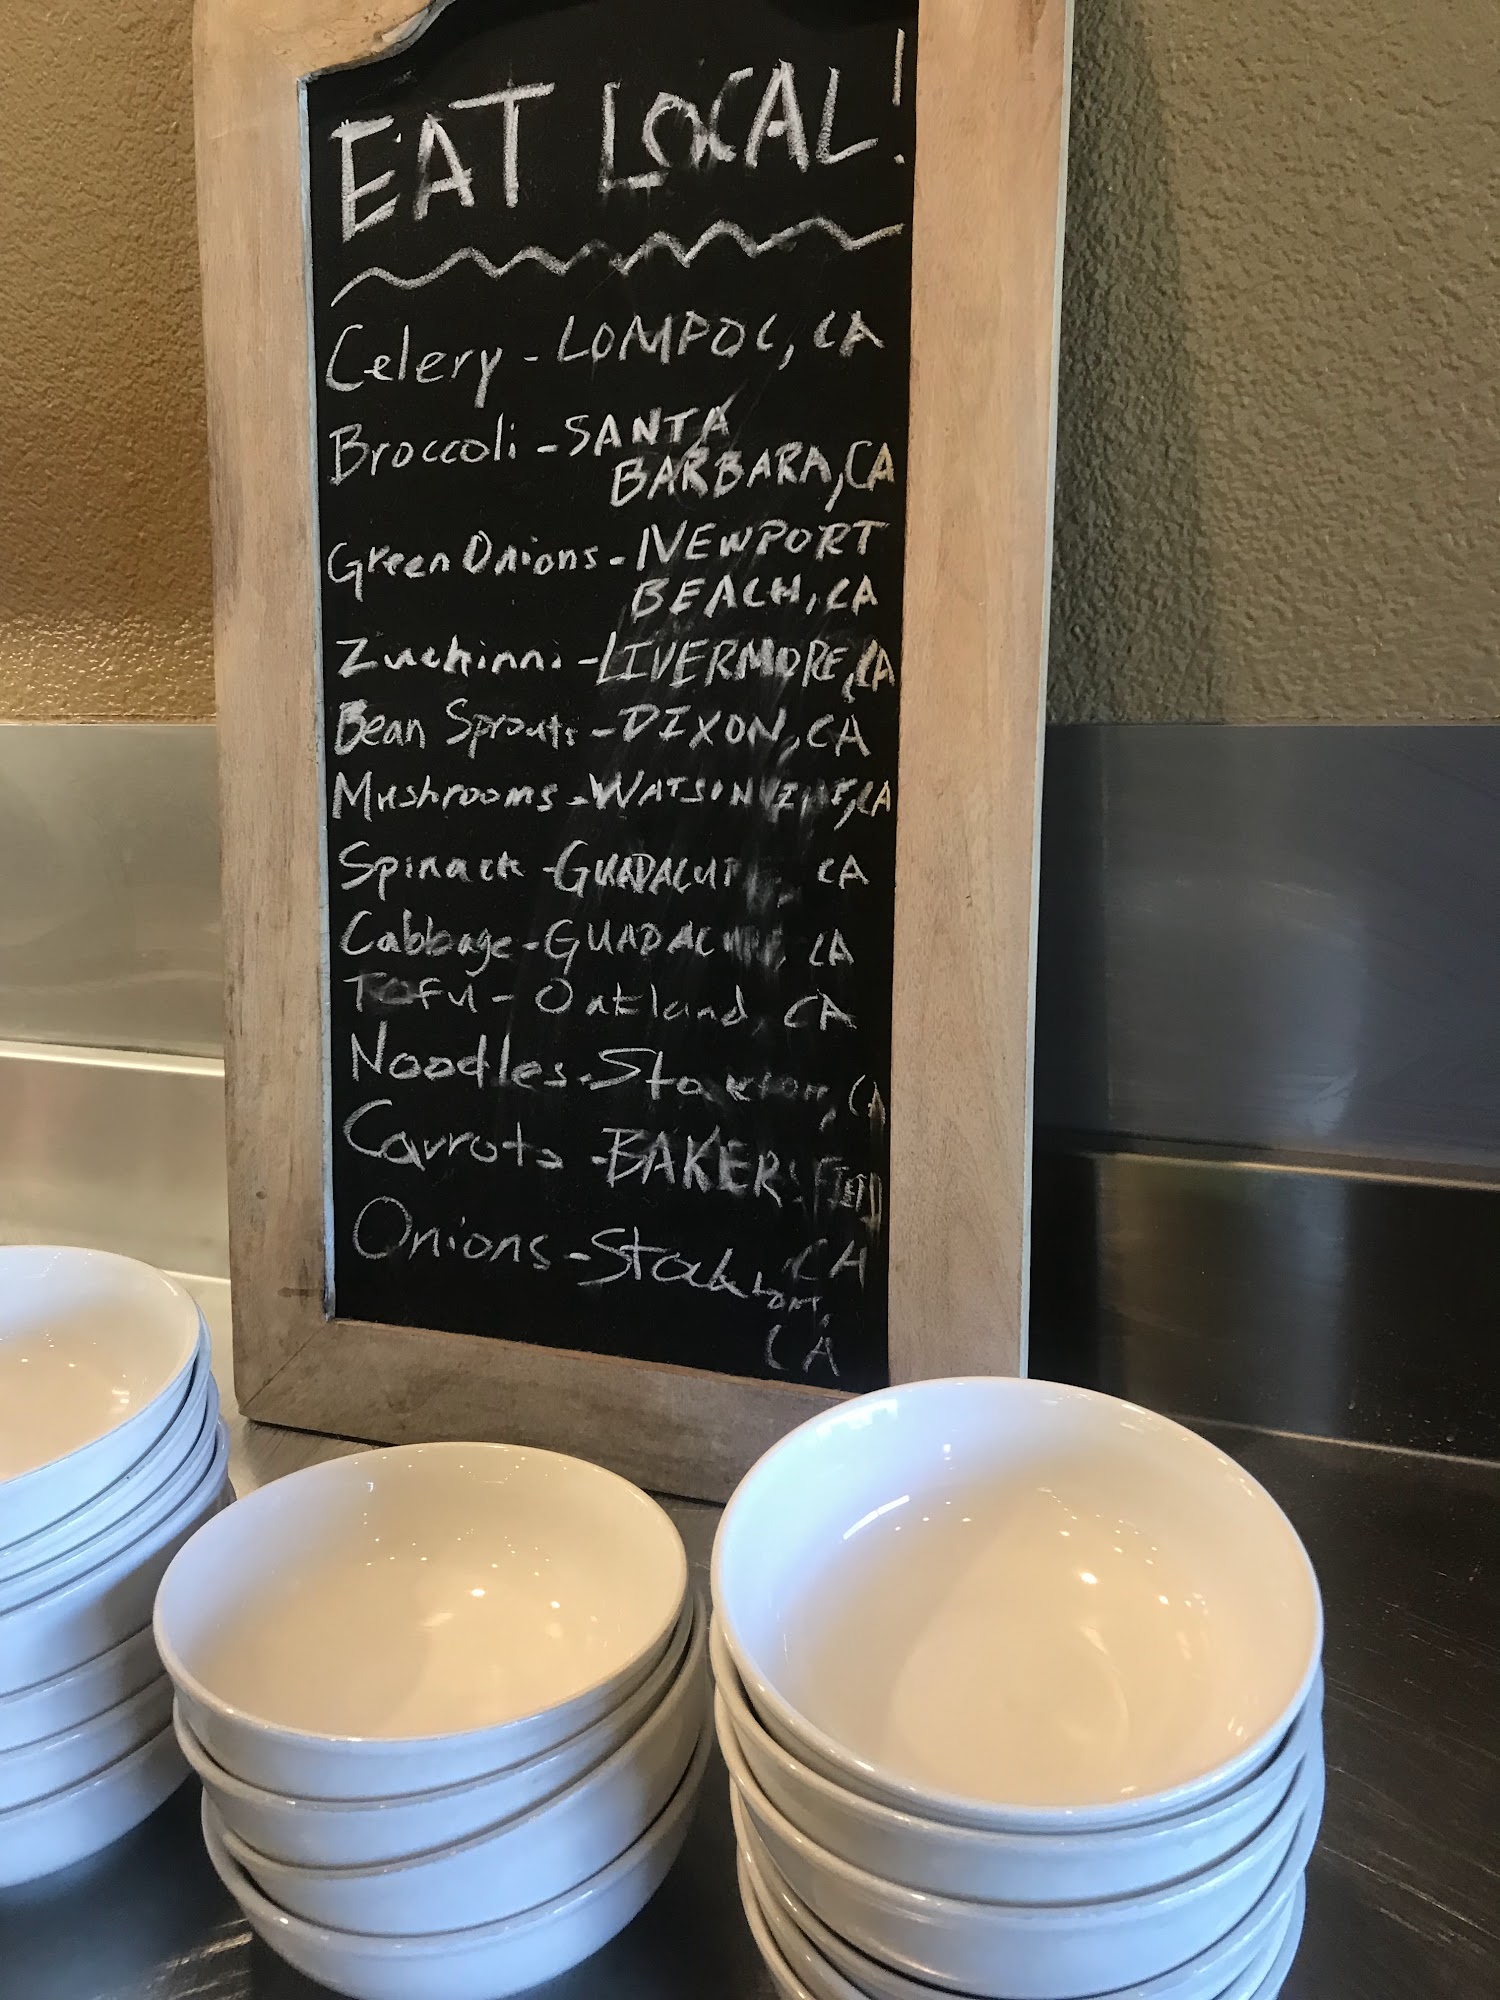 EAT LOCAL!
Celery - LOMPOC, CA
Broccoli - SANTA
BARBARA, CA
Green Onions - NEWPORT
BEACH, CA
Zuchinni - LIVERMORE, CA
Bean Sprouts - DIXON, CA
Mushrooms - WATSONVILLE, CA
Spinach - GUADALUPE, CA
Cabbage - GUADALUPE, CA
TOFU - Oakland, CA
Noodles - Stockton, CA
Carrots - BAKERSFIELD
CA
Onions - Stockton,
CA